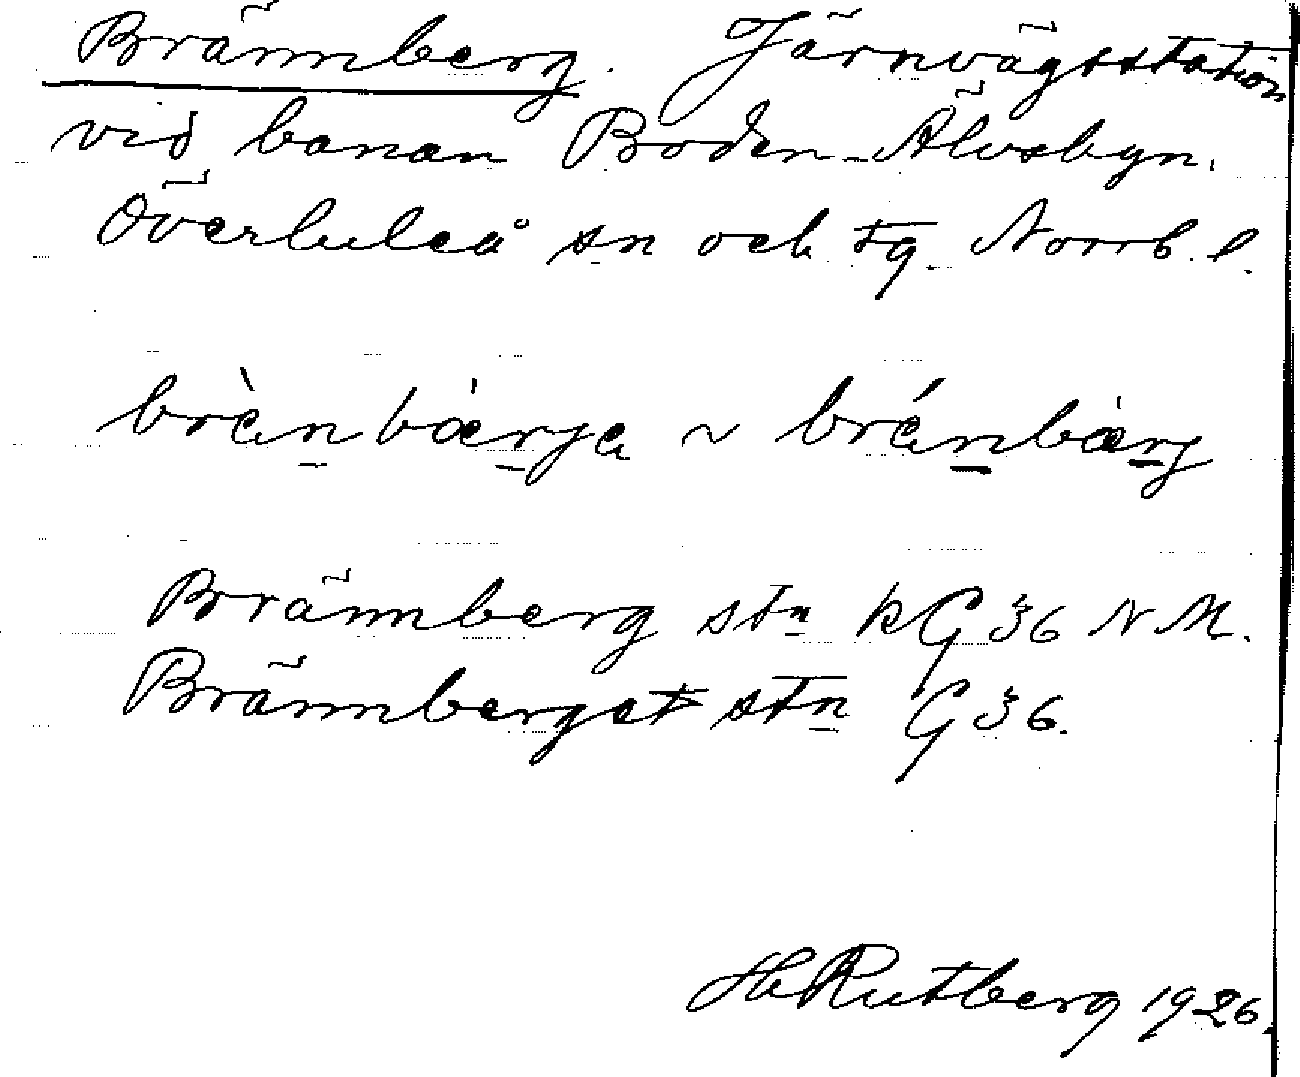 Brännberg. Järnvägsstation
vid banan Boden-Älvsbyn.
Överluleå sn och tg. Norrb. l.
brànbærja ~ bránbærj
Brännberg stn kG 36 N.M.
Brännberget stn G 36.
H Rutberg 1926.